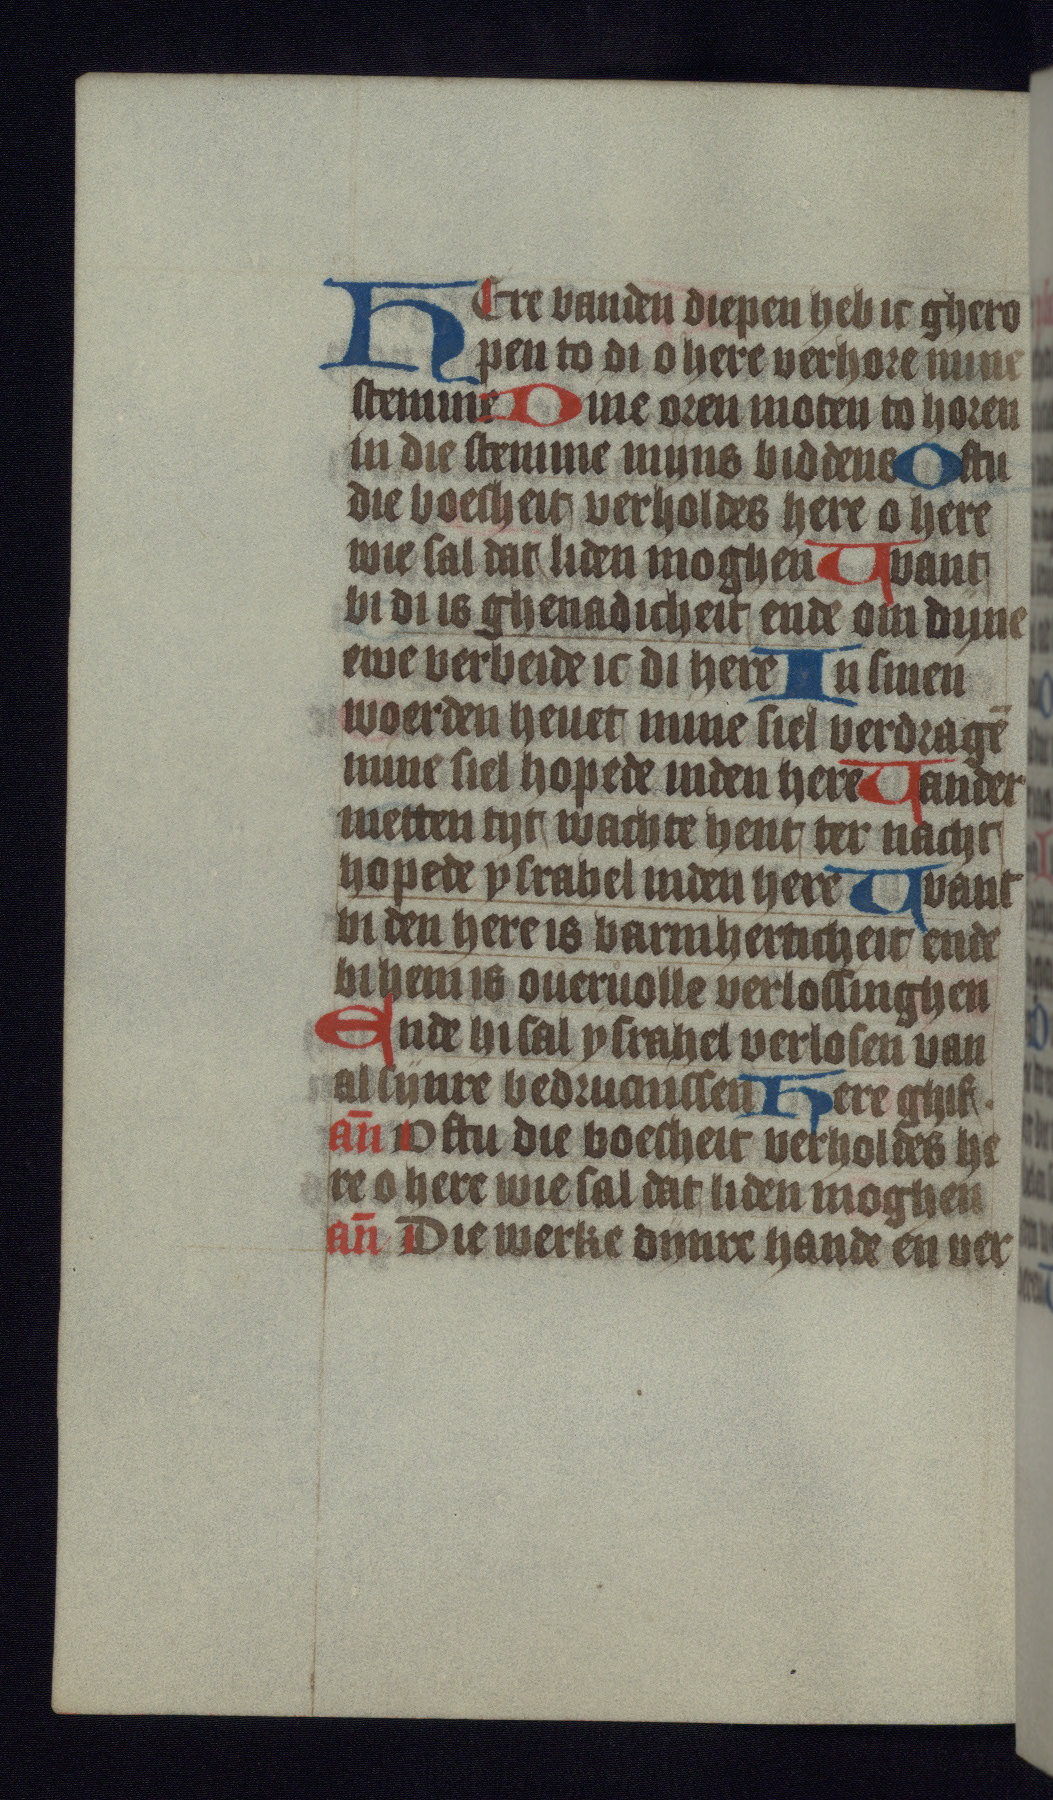 HEre vanden diepen heb ic ghero
pen to di o here verhore mine
stemme Dine oren moten to horen
in die stemme mijns biddens Ofstu
die boesheit verholdes here o here
wie sal dat liden moghen Want
bi di is ghenadicheit ende om dijne
ewe verbeide ic di here In sinen
woerden heuet mine siel verdragē
mine siel hopede inden here Vander
metten tijt wachte hent ter nacht
hopede ysrahel inden here Want
bi den here is barmherticheit ende
bi hem is oueruolle verlossinghen
Ende hi sal ysrahel verlosen van
al sijnre bedrucnissen Here ghif.
an̄ Ofstu die boesheit verholdes he
re o here wie sal dat liden moghen
an̄ Die werke dijnre hande en ver